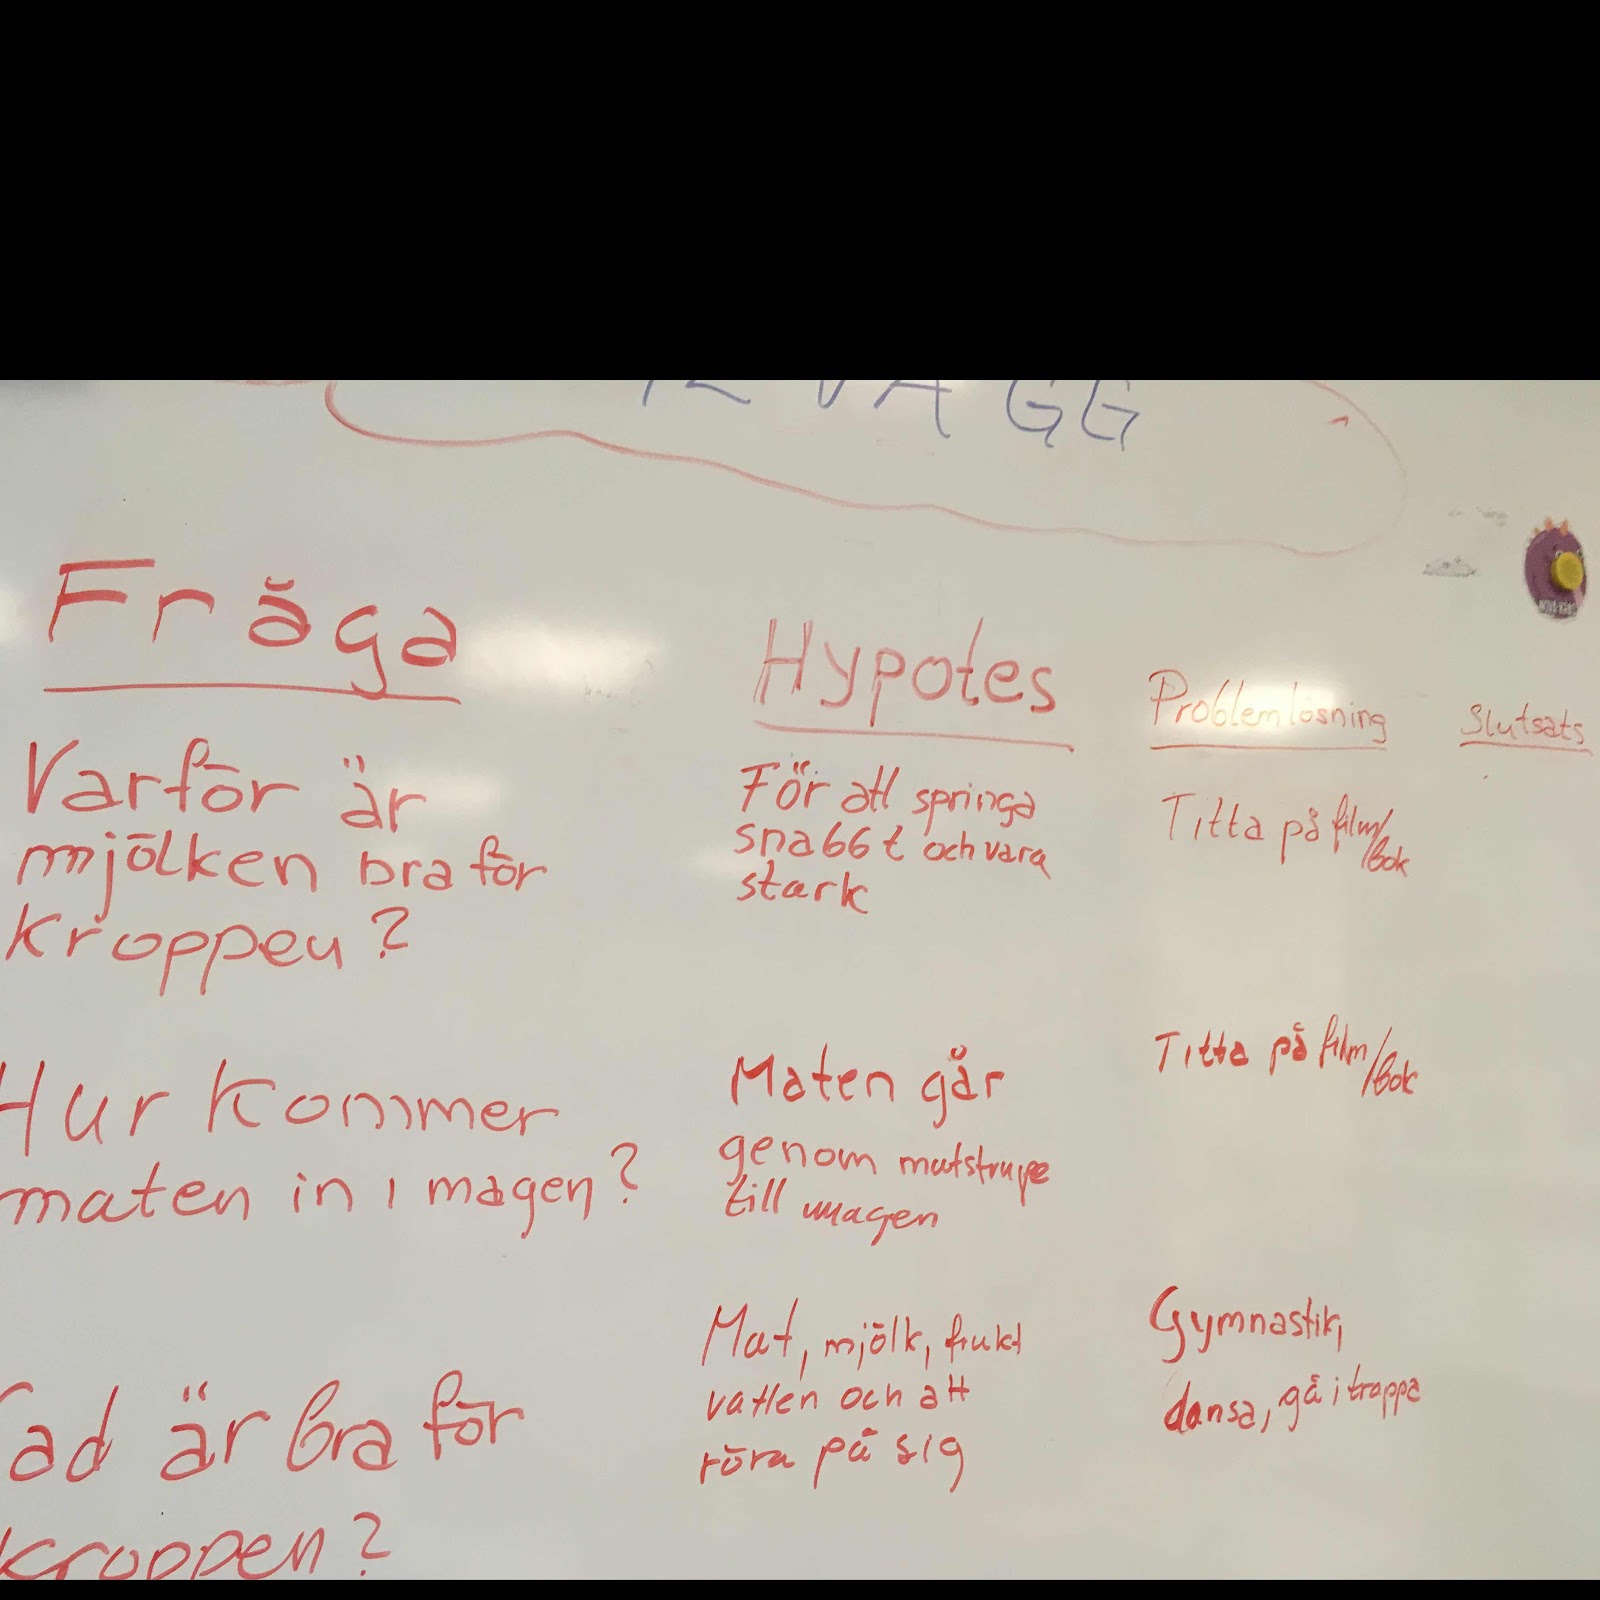 VÄGG
Fråga
Hypotes
Problemlösning
Slutsats
Varför är
mjölken bra för
kroppen?
För att springa
snabbt och vara
stark
Titta på film/
bok
Hur kommer
maten in i magen?
Maten går
genom matstrupe
till magen
Titta på film/
bok
Vad är bra för
kroppen?
Mat, mjölk, frukt
vatten och att
röra på sig
Gymnastik,
dansa, gå i trappa